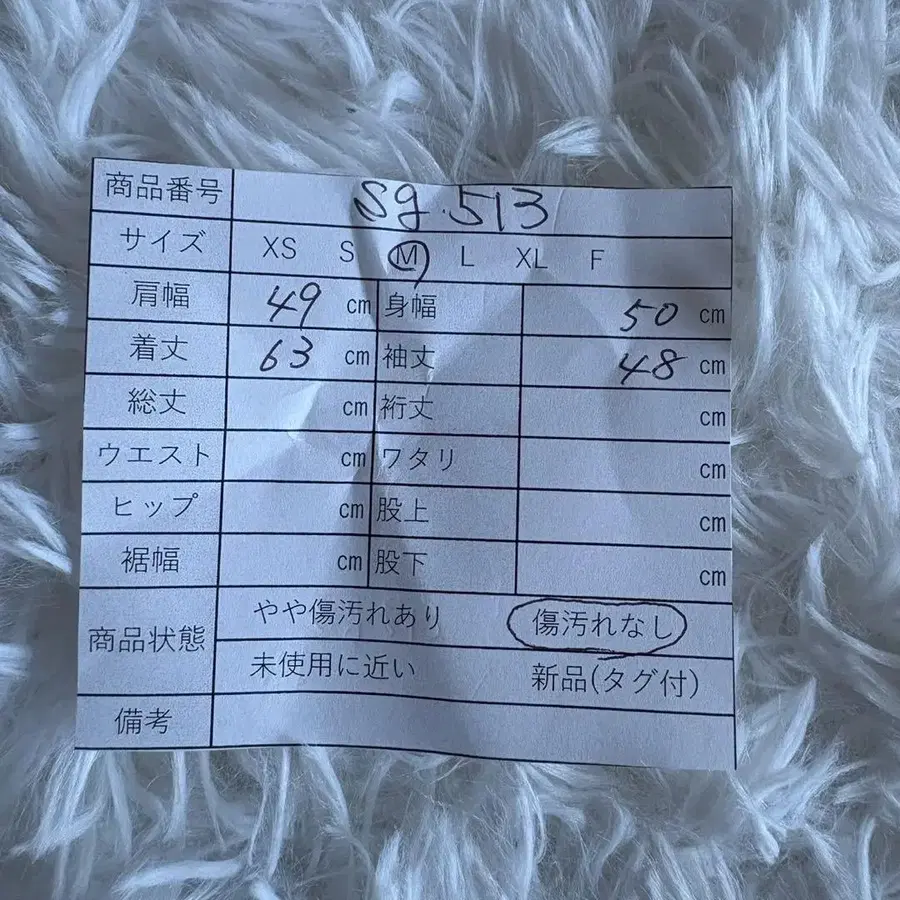 商品番号 sg.513
サイズ XS S M L XL F
肩幅 49 cm 身幅 50 cm
着丈 63 cm 袖丈 48 cm
総丈 cm 裄丈 cm
ウエスト cm ワタリ cm
ヒップ cm 股上 cm
裾幅 cm 股下 cm
商品状態 やや傷汚れあり 傷汚れなし
未使用に近い 新品(タグ付)
備考